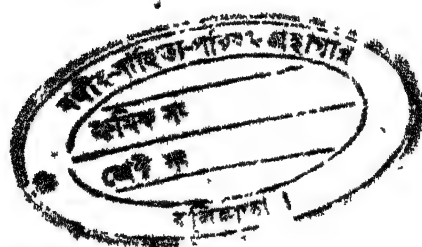 বঙ্গীয়-সাহিত্য-পরিষৎ গ্রন্থাগার
ক্রমিক নং
শ্রেণী নং
কলিকাতা।